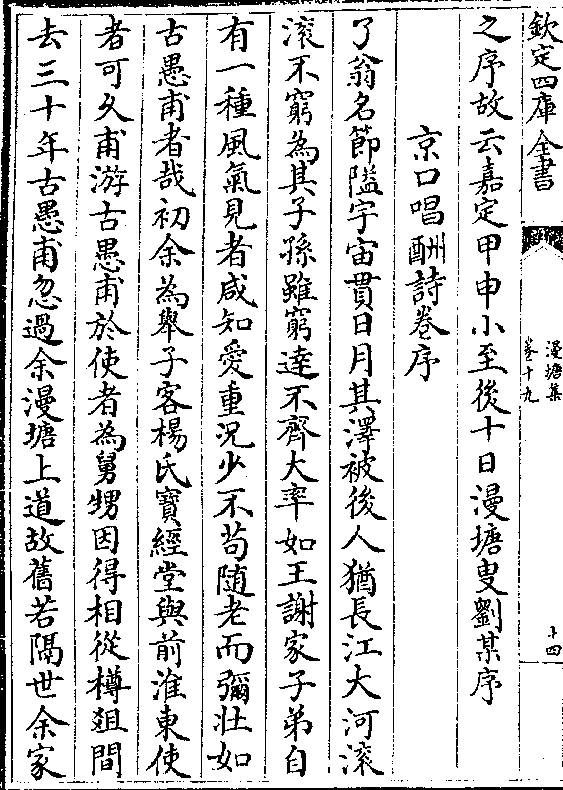 欽定四庫全書
漫塘集
卷十九
十四
之序故云嘉定甲申小至後十日漫塘叟劉某序
京口唱酬詩卷序
了翁名節隘宇宙貫日月其澤被後人猶長江大河滚
滚不窮為其子孫雖窮達不齊大率如王謝家子弟自
有一種風氣見者咸知愛重況少不苟随老而彌壯如
古愚甫者哉初余為舉子客楊氏寳經堂與前淮東使
者可久甫游古愚甫於使者為舅甥因得相從樽爼間
去三十年古愚甫忽過余漫塘上道故舊若隔世余家